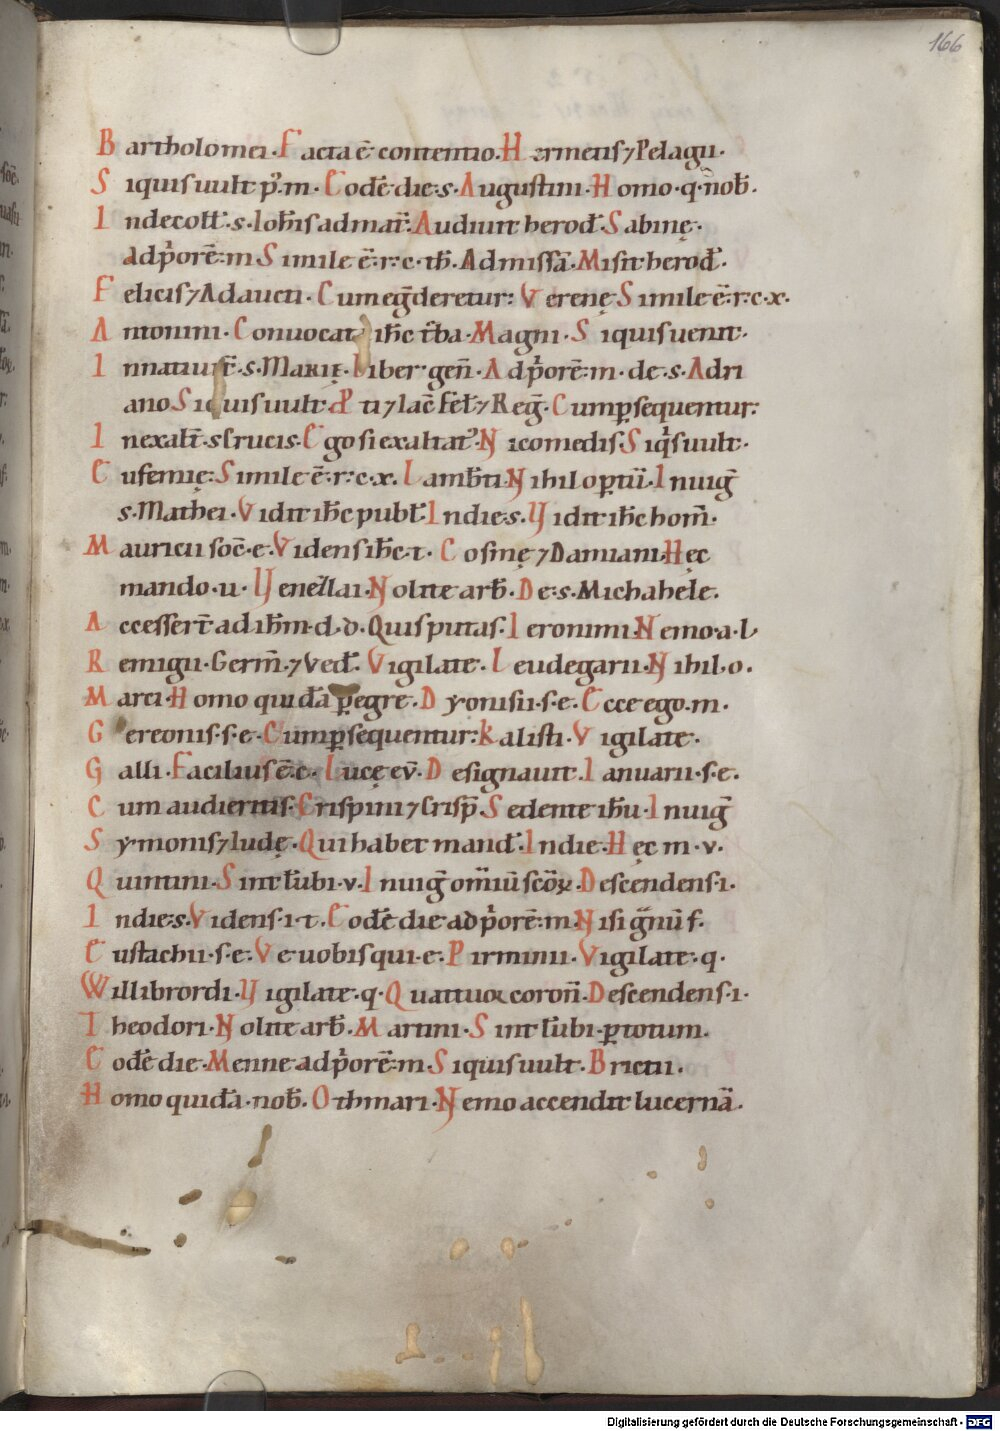 166
Bartholomei. Facta ē contentio. Hermetis ⁊ Pelagii.
Siquis uult p̄.m. Eodē die s. Augustini. Homo. q. nob̄.
In decoll̄. s. Ioh̄is ad mat̄. Audiuit herod̄. Sabinę.
ad p̓orē m̄. Simile ē.r.c.th̄. Ad missā. Misit herod̄.
Felicis ⁊ Adaucti. Cum eḡderetur. Verenę Simile ē.r.c.x.
Antonini. Conuocatis ih̄c
Magni. Siquis uenit.
In natiuit̄. s. Marię. Liber gen̄. Ad p̓orē.m. de. s. Adri
ano Siquis uult. P ti ⁊ Iac̄ Fel̄ ⁊ Reḡ. Cum p̱sequentur.
In exalt̄. s crucis. Ego si exaltat̓. Nicomedis. Siq̓s uult.
Eufemię. Simile ē.r.c.x. Lamb̄ti. Nihil op̱tū. In uiḡ
s. Mathei. Vidit ih̄c publ̄. In die s. Vidit ih̄c hom̄.
Mauricii soc̄.e. Videns ih̄c.t. Cosmę ⁊ Damiani. Hęc
mando.u. Venezlai. Nolite arb̄. De.s. Michahele.
Accesser̄t ad ih̄m.d.d. Quis putas. Ieronimi. Nemo.a.l
Remigii. Germ̄. ⁊ Ved̄. Vigilate. Leudegarii. Nihil.o.
Marci. Homo quidā p̱egre. Dyonisii.s.e. Ecce ego.m.
Gereonis.s.e. Cum p̱sequentur. Kalisti. Vigilate.
Galli. Facilius ē.c. Lucę ev̄. Designauit. Ianuarii.s.e.
Cum audieritis. Crispini ⁊ Crisp̄. Sedente ih̄u. In uiḡ
Symonis ⁊ Iudę. Qui habet mand̄. In die. Hęc m.v.
Quintini. Sint lūbi.v. In uiḡ om̄iū sc̄oꝝ. Descendens.i.
In die.s. Videns.i.t. Eodē die ad p̓orē.m. Nisi ḡnū f.
Eustachii.s.e. Ve uobis qui.e. Pirminii. Vigilate.q.
Willibrordi. Vigilate.q. Quattuor coron̄. Descendens.i.
Theodori. Nolite arb̄. Martini. Sint lūbi. p̱ totum.
Eodē die. Menne ad p̓orē.m. Siquis uult. Brictii.
Homo quidā. nob̄. Othmari. Nemo accendit lucernā.
Digitalisierung gefördert durch die Deutsche Forschungsgemeinschaft - DFG